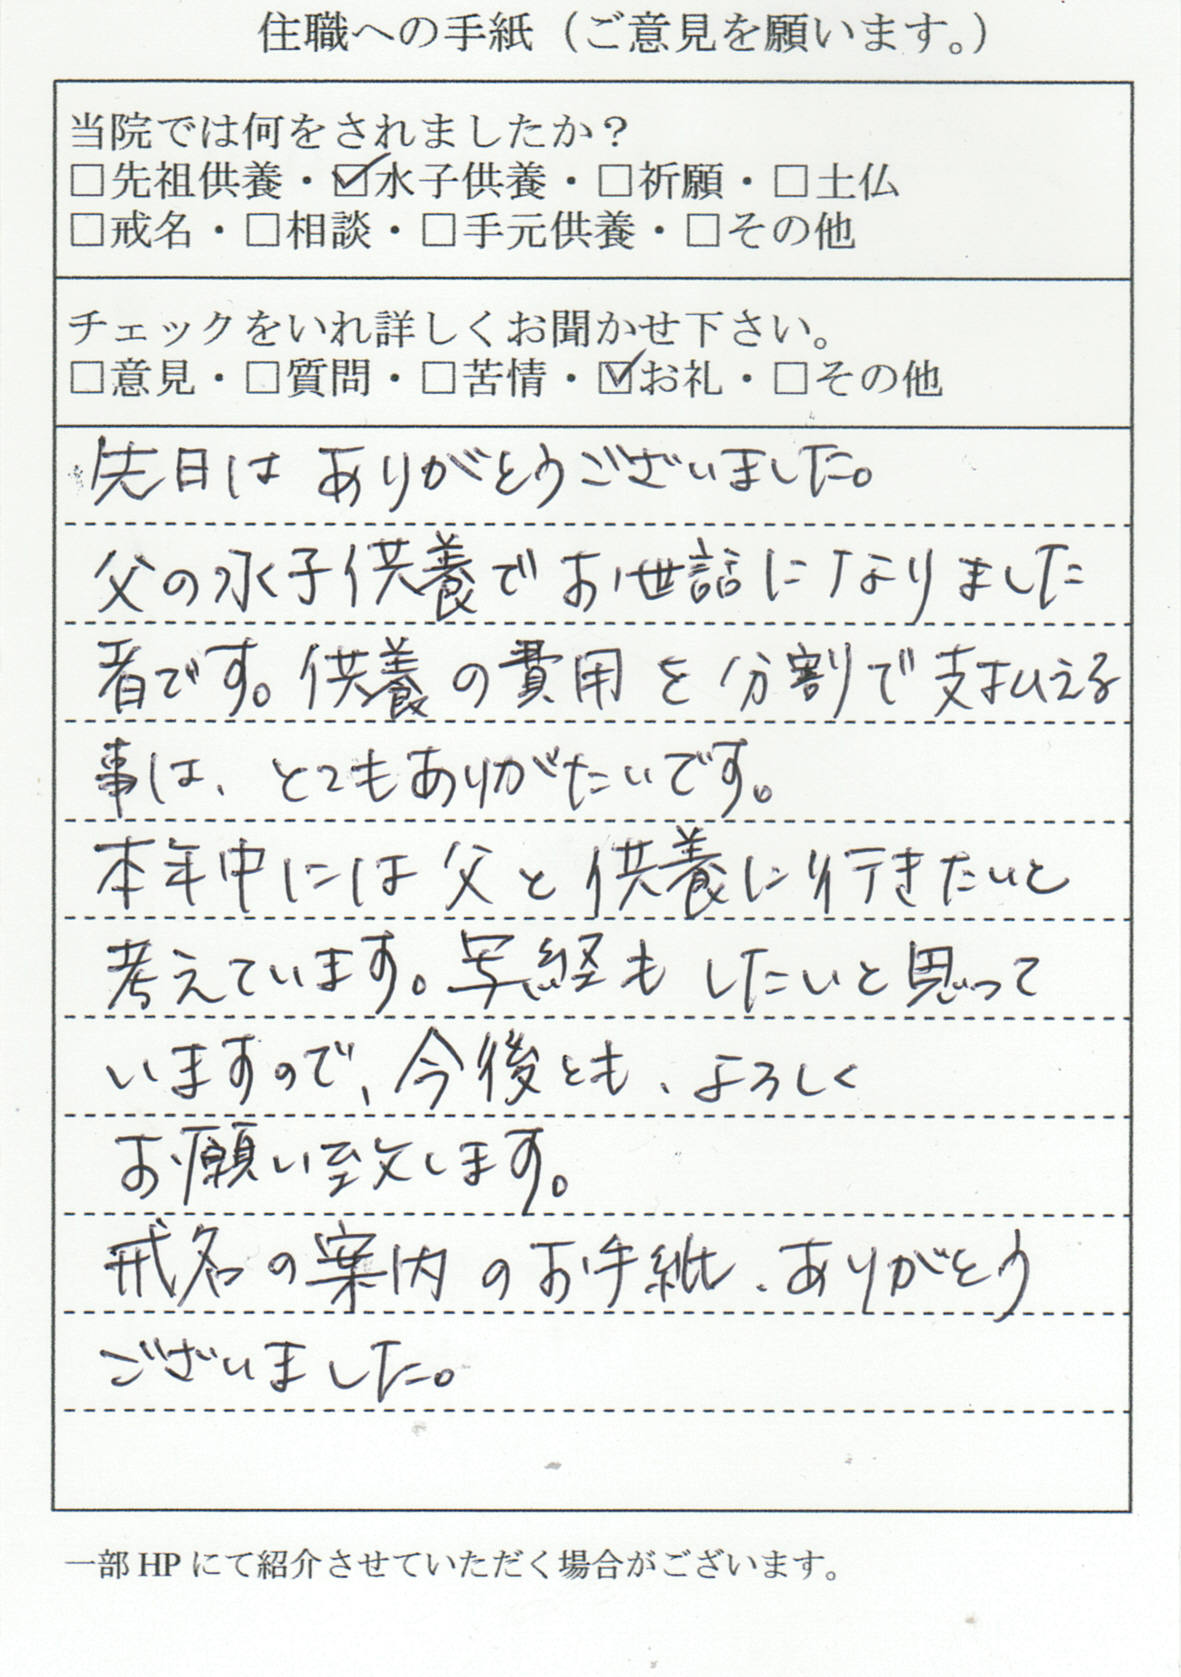 住職への手紙（ご意見を願います。）
当院では何をされましたか？
□先祖供養・☑水子供養・□祈願・□土仏
□戒名・□相談・□手元供養・□その他
チェックをいれ詳しくお聞かせ下さい。
□意見・□質問・□苦情・☑お礼・□その他
先日は ありがとうございました。
父の水子供養でお世話になりました
者です。供養の費用を分割で支払える
事は、とてもありがたいです。
本年中には父と供養に行きたいと
考えています。写経もしたいと思って
いますので、今後とも、よろしく
お願い致します。
戒名の案内のお手紙、ありがとう
ございました。
一部HPにて紹介させていただく場合がございます。